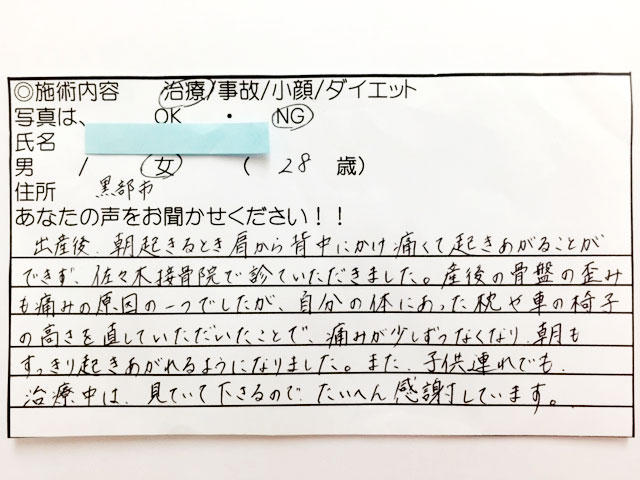 ◎施術内容　治療/事故/小顔/ダイエット
写真は、　OK　・　NG
氏名
男　/　女　（　28　歳）
住所　黒部市
あなたの声をお聞かせください！！
出産後、朝起きるとき肩から背中にかけ痛くて起きあがることが
できず、佐々木接骨院で診ていただきました。産後の骨盤の歪み
も痛みの原因の一つでしたが、自分の体にあった枕や車の椅子
の高さを直していただいたことで、痛みが少しずつなくなり、朝も
すっきり起きあがれるようになりました。また、子供連れでも、
治療中は、見ていて下さるので、たいへん感謝しています。